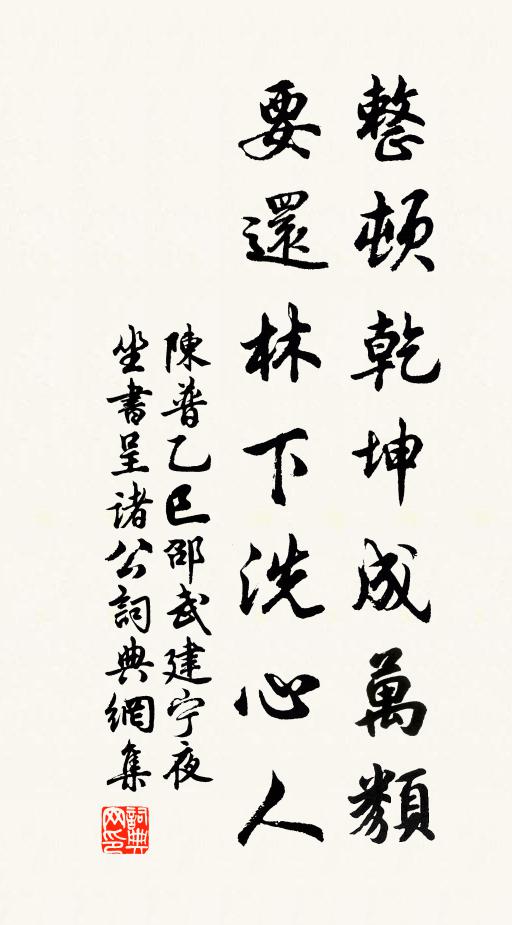 整頓乾坤成萬類
要還林下洗心人
陳普乙巳邵武建宁夜
坐書呈诸公詞典網集
詞典网印